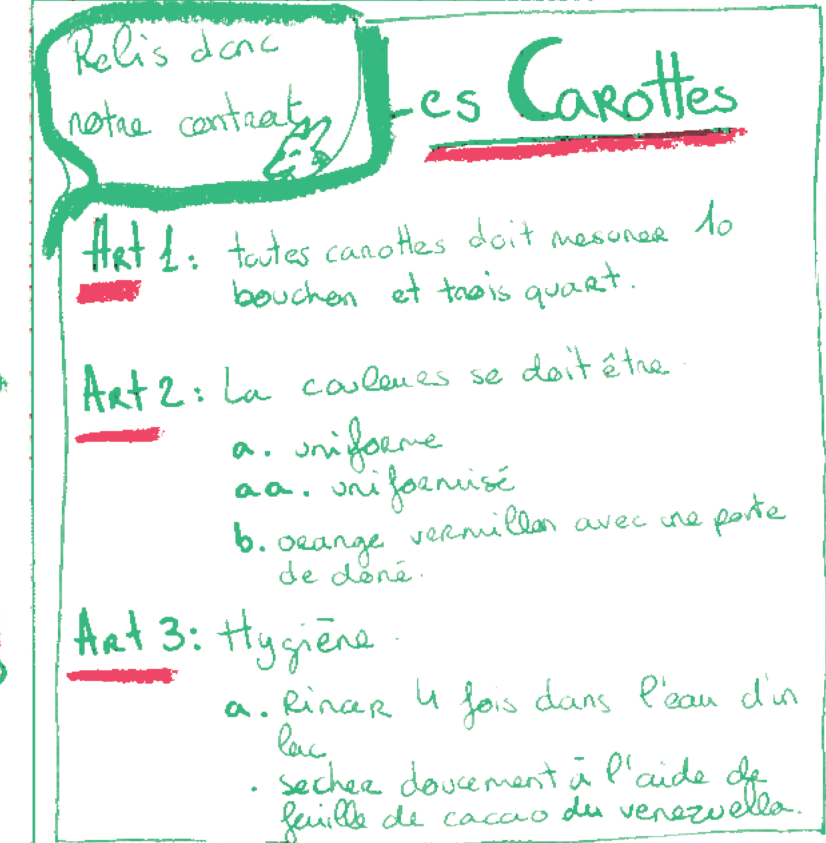 Relis donc
notre contrat
Les Carottes
Art 1: toutes carottes doit mesurer 10
bouchon et trois quart.
Art 2: La couleures se doit être.
a. uniforme
aa. uniformisé
b. orange vermillon avec une pointe
de doré.
Art 3: Hygiène.
a. Rincer 4 fois dans l'eau d'un
lac
. secher doucement à l'aide de
feuille de cacao du venezuella.